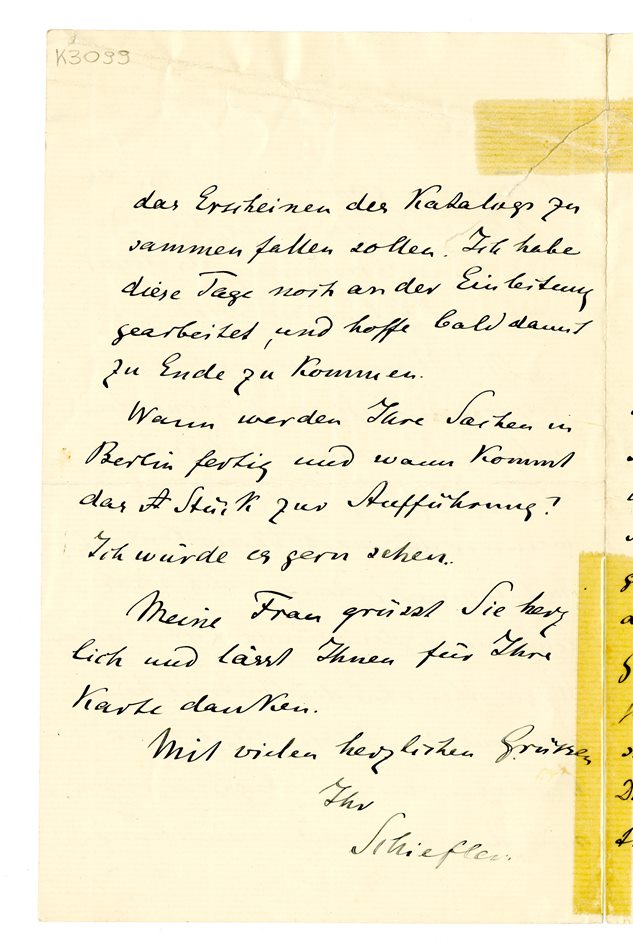 K3099
das Erscheinen des Katalogs zu
sammen fallen sollen. Ich habe
diese Tage noch an der Einleitung
gearbeitet, und hoffe bald damit
zu Ende zu kommen.
Wann werden Ihre Sachen in
Berlin fertig und wann kommt
das Stück zur Aufführung?
Ich würde es gern sehen.
Meine Frau grüsst Sie herz
lich und lässt Ihnen für Ihre
Karte danken.
Mit vielen herzlichen Grüssen
Ihr
Schiefler.